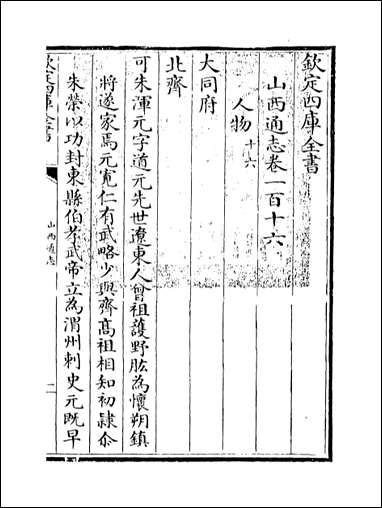 欽定四庫全書
山西通志卷一百十六
人物十六
大同府
北齊
可朱渾元字道元先世遼東人曾祖護野肱為懷朔鎮
將遂家焉元寬仁有武略少與齊髙祖相知初隸尒
朱榮以功封東縣伯孝武帝立為渭州刺史元既早
欽定四庫全書
山西通志